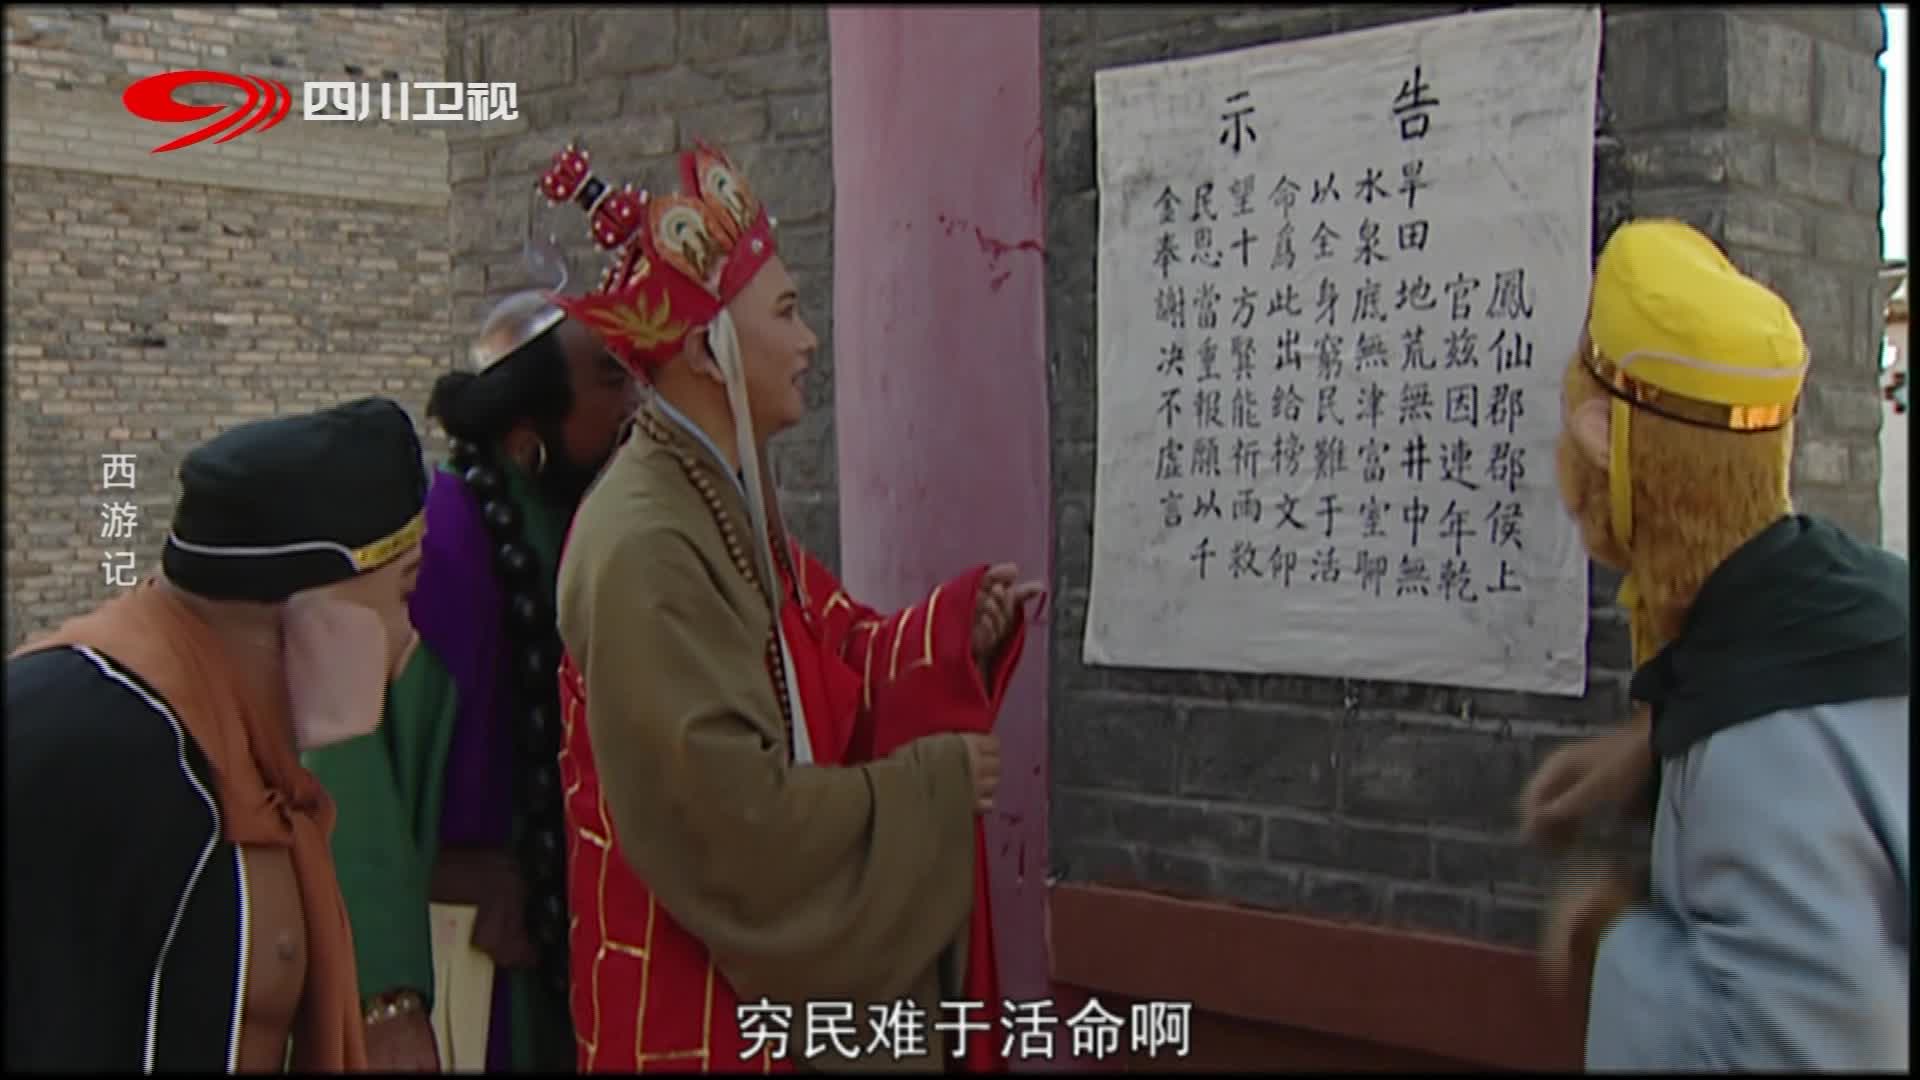 四川卫视
西游记
告示
鳳仙郡郡侯上
官茲因連年乾
旱田地荒無井中無
水泉底無津富室聊
以全身窮民難于活
命爲此出給榜文仰
望十方賢能祈雨救
民恩當重報願以千
金奉謝决不虛言
穷民难于活命啊